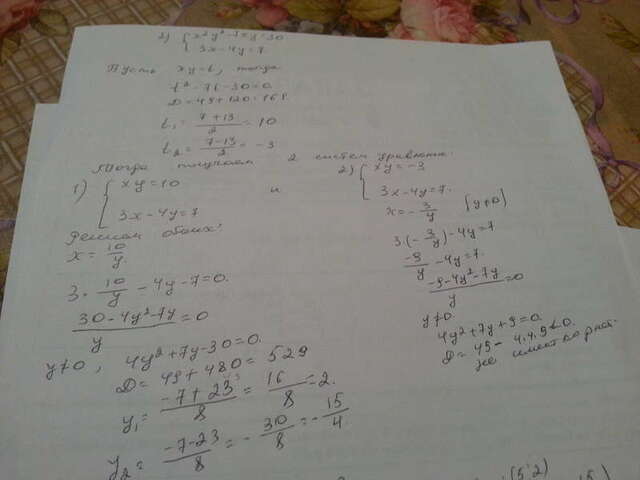 2) { x²y²-7xy=30
3x-4y=7
Пусть xy=t, тогда
t²-7t-30=0.
D=49+120=169
t₁ = (7+13)/2 = 10
t₂ = (7-13)/2 = -3
Тогда получаем 2 систем уравнение:
1) { xy=10
3x-4y=7
и
Решаем обоих:
x = 10/y
3·10/y - 4y - 7=0.
(30-4y²-7y)/y = 0
y≠0, 4y²+7y-30=0.
D=49+480=529
y₁ = (-7+23)/8 = 16/8 = 2.
y₂ = (-7-23)/8 = -30/8 = -15/4.
2) { xy=-3
3x-4y=7.
x = -3/y [y≠0]
3(-3/y)-4y=7
-9/y - 4y=7.
(-9-4y²-7y)/y = 0
y≠0.
4y²+7y+9=0.
D=49-4·4·9<0.
не имеет
(5;2)